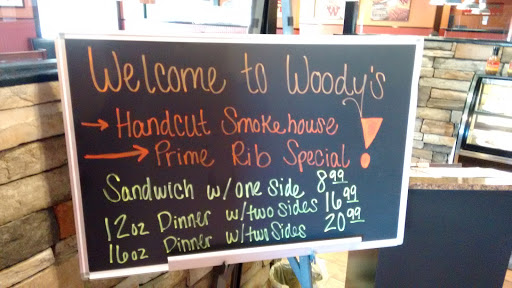 Welcome to Woody's
→ Handcut Smokehouse
→ Prime Rib Special!
Sandwich w/one side 8.99
12oz Dinner w/two sides 16.99
16oz Dinner w/two sides 20.99